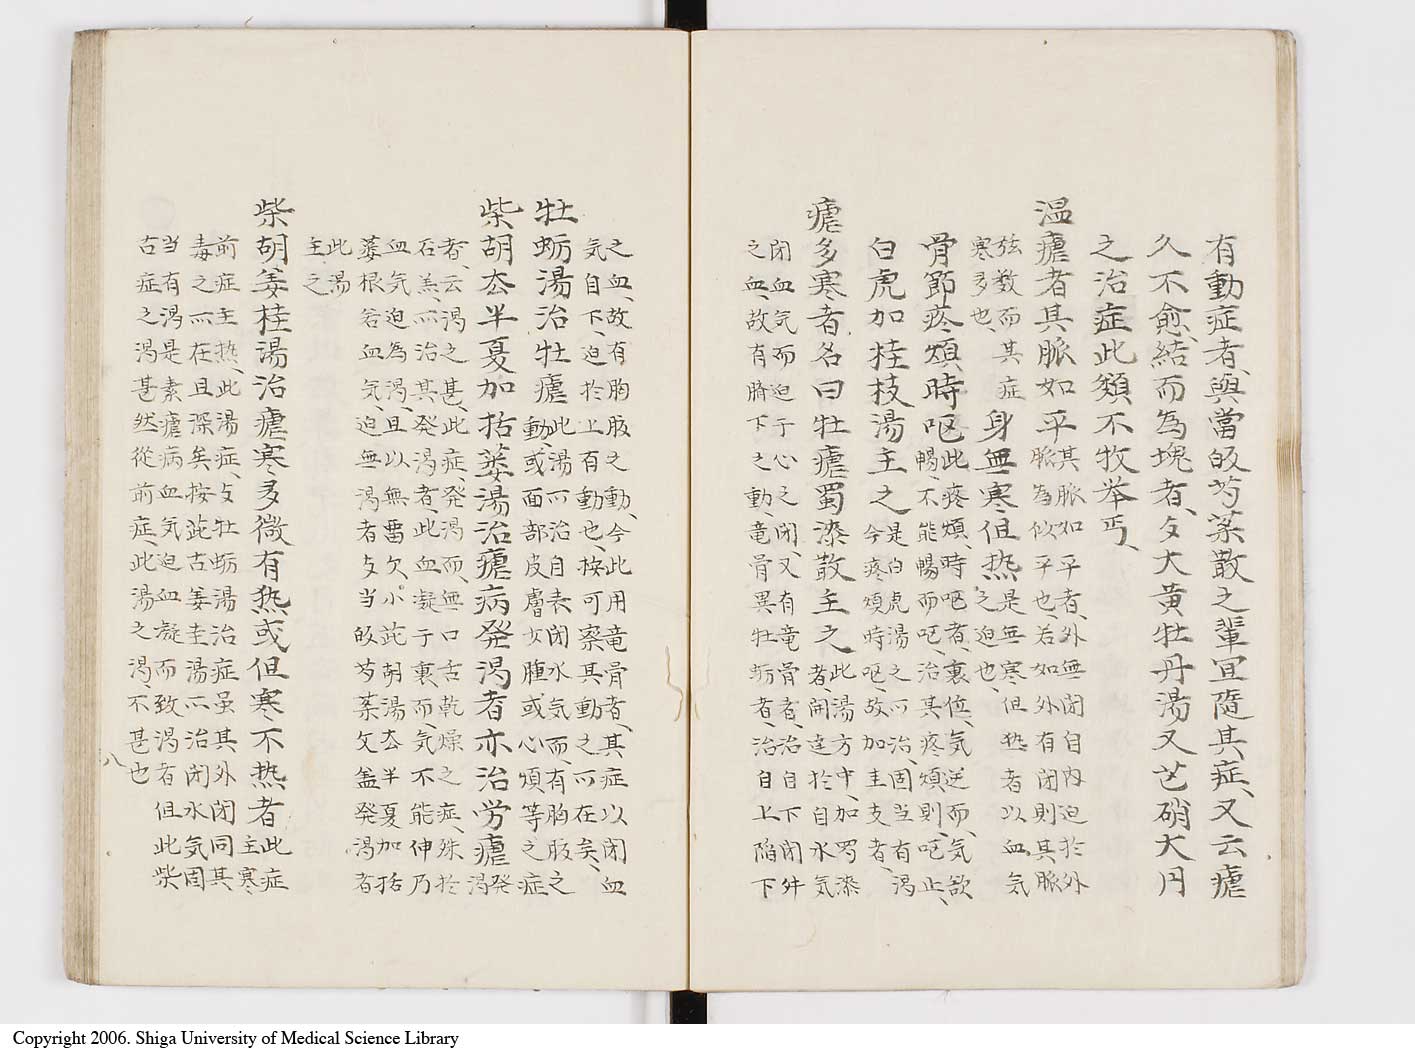 有動症者、與當皈芍薬散之輩宜隨其症、又云瘧
久不愈、結而為塊者、与大黄牡丹湯又芒硝大円
之治症此類不牧举丐、
温瘧者其脈如平其脈如平者、外無閉自内迫於外
脈為似平也、若如外有閉則其脈
弦数而其症身無寒但热是無寒但热者以血気
之迫也、
寒多也、
骨節疼煩時呕此疼煩、時呕者、裏位、気逆而、気欲
暢、不能暢而呕、治其疼煩則、呕止、
白虎加桂枝湯主之是白虎湯之所治、固当有渇
今疼煩時呕、故加圭支者、
瘧多寒者名曰牡瘧蜀漆散主之此湯方中、加蜀漆
者、開達於自水気
閉血気而迫于心之閉、又有竜骨者、治自下閉升
之血、故有臍下之動、竜骨異牡蛎者、治自上陷下
之血、故有胸腹之動、今此用竜骨者、其症以閉血
気自下、迫於上有動也、按可察其動之所在矣、
牡蛎湯治牡瘧此湯所治自表閉水気而、有胸腹之
動、或面部皮膚少腫或心煩等之症
柴胡去半夏加栝蔞湯治瘧病発渇者亦治労瘧発
渇
者、云渇之甚、此症、発渇而、無口舌乾燥之症、殊於
石羔、所治其発渇者、此血凝于裏、而、気不能伸乃
血気迫為渇、且以無畱欠、小茈胡湯去半夏加栝
蔞根若血気、迫無渇者与当皈芍薬攵盖発渇者
此湯
主之
柴胡姜桂湯治瘧寒多微有热或但寒不热者此症
主寒
前症主热、此湯症、与牡蛎湯治症虽其外閉同其
毒之所在且深矣按茈古姜圭湯所治閉水気固
当有渇是素瘧病血気迫血凝而致渇者但此柴
古症之渇甚然從前症、此湯之渇、不甚也
八
Copyright 2006. Shiga University of Medical Science Library